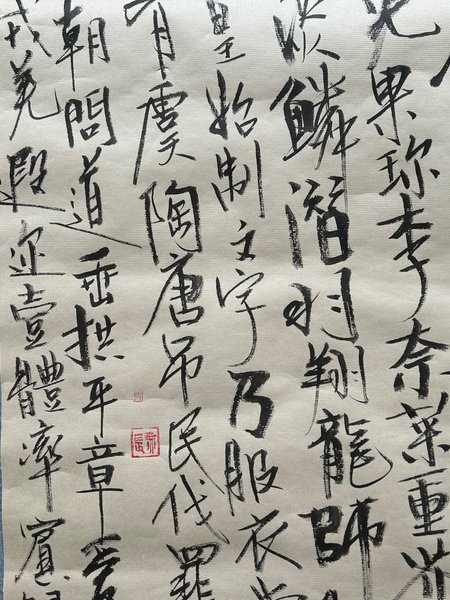 光果珍李奈菜重芥
淡鱗潛羽翔龍師
皇始制文字乃服衣裳
有虞陶唐吊民伐罪
朝問道垂拱平章愛
戎羌遐迩壹體率賓歸